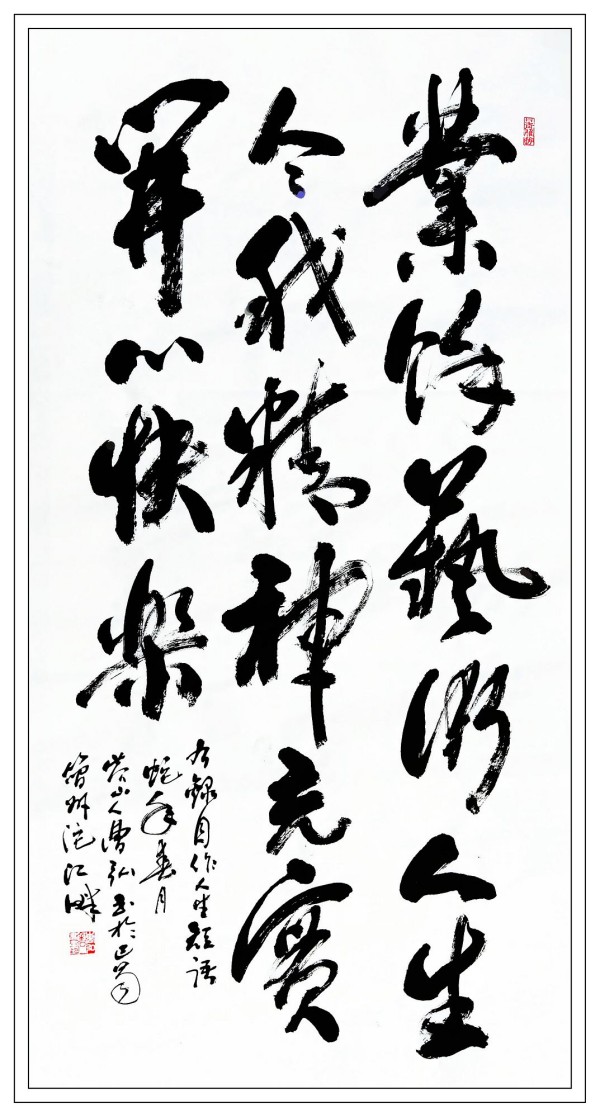 業餘藝術人生
令我精神充實
開心快樂
右錄自作人生短語
蛇年春月
岩山人曹弘書於巴蜀
簡州沱江畔